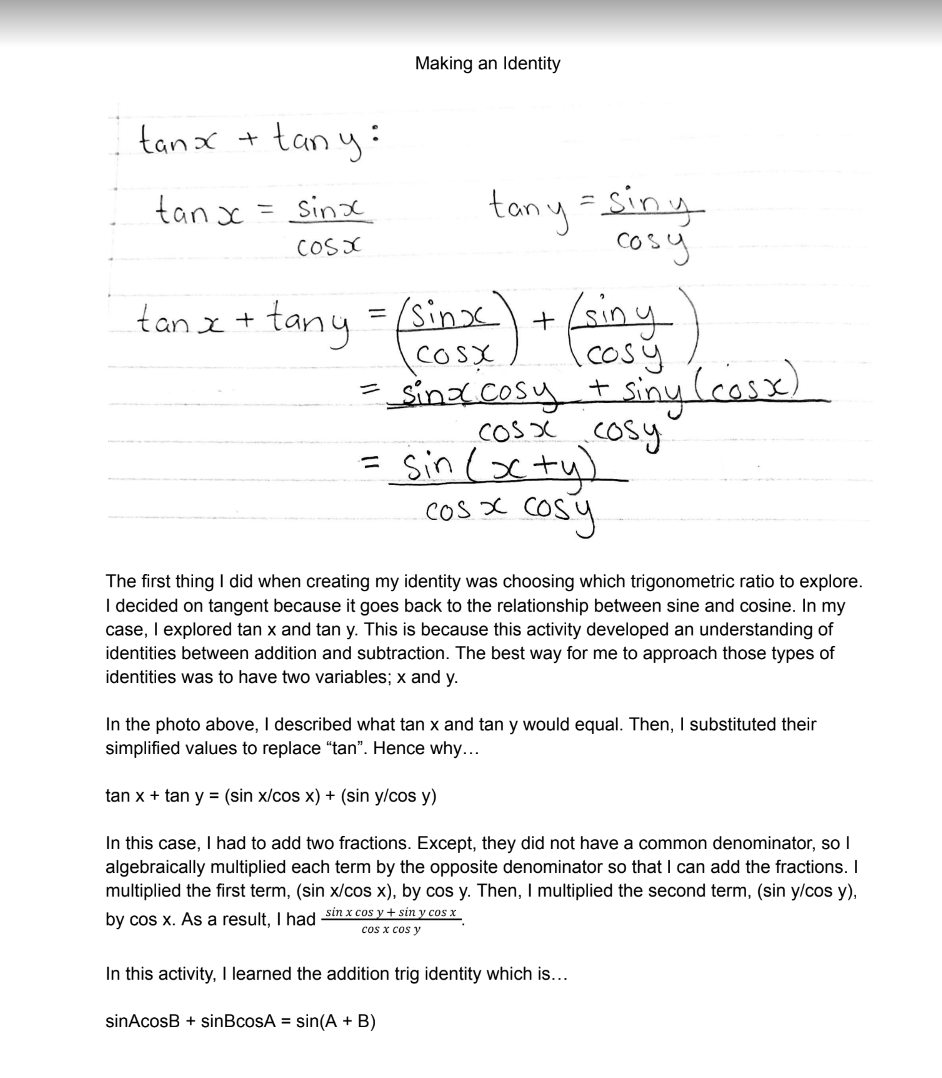 Making an Identity
tan x + tan y:
tan x = sin x / cos x    tan y = sin y / cos y
tan x + tan y = (sin x / cos x) + (sin y / cos y)
= sin x cos y + sin y (cos x) / cos x cos y
= sin (x + y) / cos x cos y
The first thing I did when creating my identity was choosing which trigonometric ratio to explore.
I decided on tangent because it goes back to the relationship between sine and cosine. In my
case, I explored tan x and tan y. This is because this activity developed an understanding of
identities between addition and subtraction. The best way for me to approach those types of
identities was to have two variables; x and y.
In the photo above, I described what tan x and tan y would equal. Then, I substituted their
simplified values to replace “tan”. Hence why…
tan x + tan y = (sin x/cos x) + (sin y/cos y)
In this case, I had to add two fractions. Except, they did not have a common denominator, so I
algebraically multiplied each term by the opposite denominator so that I can add the fractions. I
multiplied the first term, (sin x/cos x), by cos y. Then, I multiplied the second term, (sin y/cos y),
by cos x. As a result, I had sin x cos y + sin y cos x / cos x cos y.
In this activity, I learned the addition trig identity which is…
sinAcosB + sinBcosA = sin(A + B)